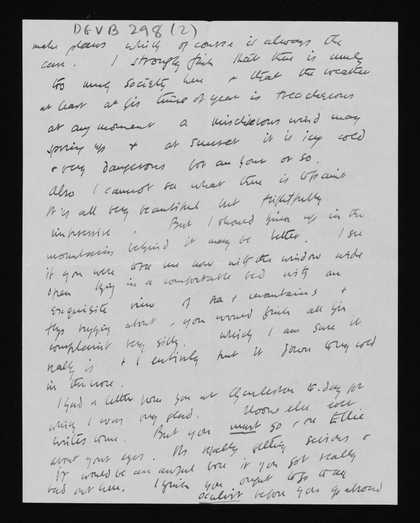 DEVB 298 (2)
make plans which of course is always the
case. I strongly think that there is much
too much society here & that the weather
at least at this time of year is treacherous
at any moment a mischievous wind may
spring up & at sunset it is icy cold
& very dangerous for an hour or so.
Also I cannot see what there is to paint
It's all very beautiful but frightfully
impressive. But I should think up in the
mountains behind it may be better. I see
if you were to see me now with the window wide
open lying in a comfortable bed with an
exquisite view of sea & mountains &
flys buzzing about, you would think all this
complaint very silly. which I am sure it
really is & I entirely put it down to my cold
in the nose.
I had a letter from you at Charleston to-day for
which I was very glad. Do
write some. But you must go & see Ellie
about your eyes. It's really getting serious &
it would be an awful bore if you got really
bad out here. I think you ought to go to an
oculist before you go abroad